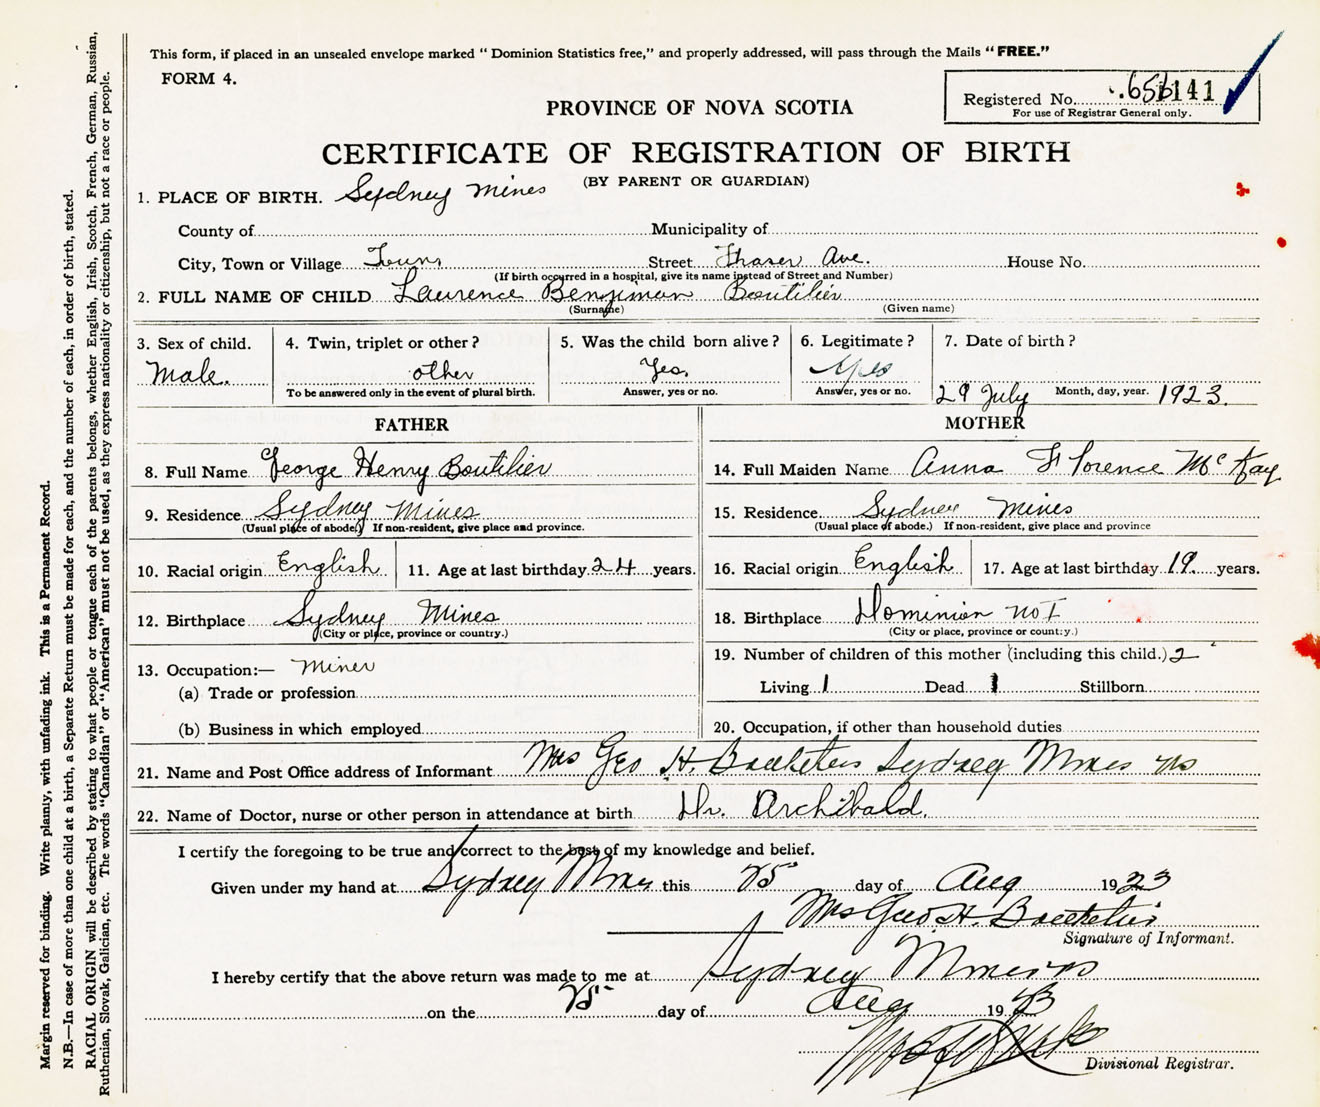 This form, if placed in an unsealed envelope marked "Dominion Statistics free," and properly addressed, will pass through the Mails "FREE."
FORM 4.
Registered No.
For use of Registrar General only.
PROVINCE OF NOVA SCOTIA
CERTIFICATE OF REGISTRATION OF BIRTH
(BY PARENT OR GUARDIAN)
1. PLACE OF BIRTH. Sydney Mines
County of Municipality of
City, Town or Village Town Street Fraser Ave. House No.
(If birth occurred in a hospital, give its name instead of Street and Number)
2. FULL NAME OF CHILD Laurence Benjiman Boutilier
(Surname) (Given name)
3. Sex of child. 4. Twin, triplet or other? 5. Was the child born alive? 6. Legitimate? 7. Date of birth?
Male. other Yes. Yes
To be answered only in the event of plural birth. Answer, yes or no. Answer, yes or no. 29 July Month, day, year. 1923.
FATHER MOTHER
8. Full Name George Henry Boutilier 14. Full Maiden Name Anna Florence McKay
9. Residence Sydney Mines 15. Residence Sydney Mines
(Usual place of abode.) If non-resident, give place and province. (Usual place of abode.) If non-resident, give place and province
10. Racial origin English 11. Age at last birthday 24 years. 16. Racial origin English 17. Age at last birthday 19 years.
12. Birthplace Sydney Mines 18. Birthplace Dominion No 1
(City or place, province or country.) (City or place, province or country.)
13. Occupation:— Miner 19. Number of children of this mother (including this child.) 2
(a) Trade or profession Living 1 Dead 1 Stillborn
(b) Business in which employed 20. Occupation, if other than household duties
21. Name and Post Office address of Informant Mrs Geo H. Boutilier Sydney Mines NS
22. Name of Doctor, nurse or other person in attendance at birth Dr. Archibald.
I certify the foregoing to be true and correct to the best of my knowledge and belief.
Given under my hand at Sydney Mines this 25 day of Aug 1923
Mrs Geo H. Boutilier
Signature of Informant.
I hereby certify that the above return was made to me at Sydney Mines NS
on the 25 day of Aug 1923
Divisional Registrar.
Margin reserved for binding. Write plainly, with unfading ink. This is a Permanent Record.
N.B.—In case of more than one child at a birth, a Separate Return must be made for each, and the number of each, in order of birth, stated.
RACIAL ORIGIN will be described by stating to what people or tongue each of the parents belongs, whether English, Irish, Scotch, French, German, Russian,
Ruthenian, Slovak, Galician, etc. The words "Canadian" or "American" must not be used, as they express nationality or citizenship, but not a race or people.